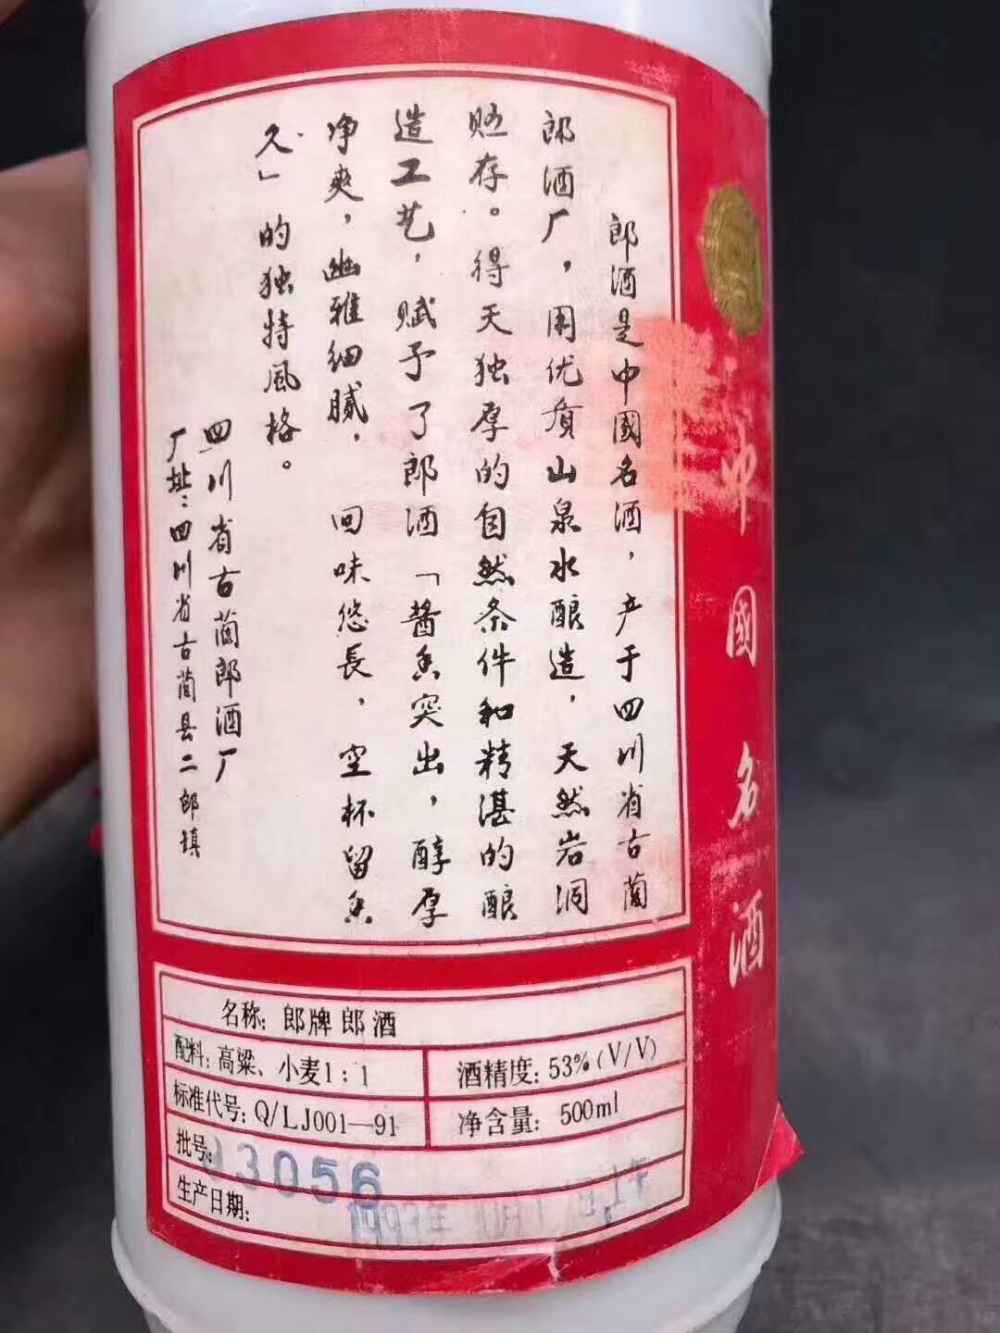 中國名酒
郎酒是中國名酒，产于四川省古蔺
郎酒厂，用优质山泉水酿造，天然岩洞
贮存。得天独厚的自然条件和精湛的酿
造工艺，赋予了郎酒「酱香突出，醇厚
净爽，幽雅细腻，回味悠長，空杯留香
久」的独特风格。
四川省古蔺郎酒厂
厂址：四川省古蔺县二郎镇
名称：郎牌郎酒
配料：高粱、小麦1：1
酒精度：53%(V/V)
标准代号：Q/LJ001—91
净含量：500ml
批号：
3056
生产日期：